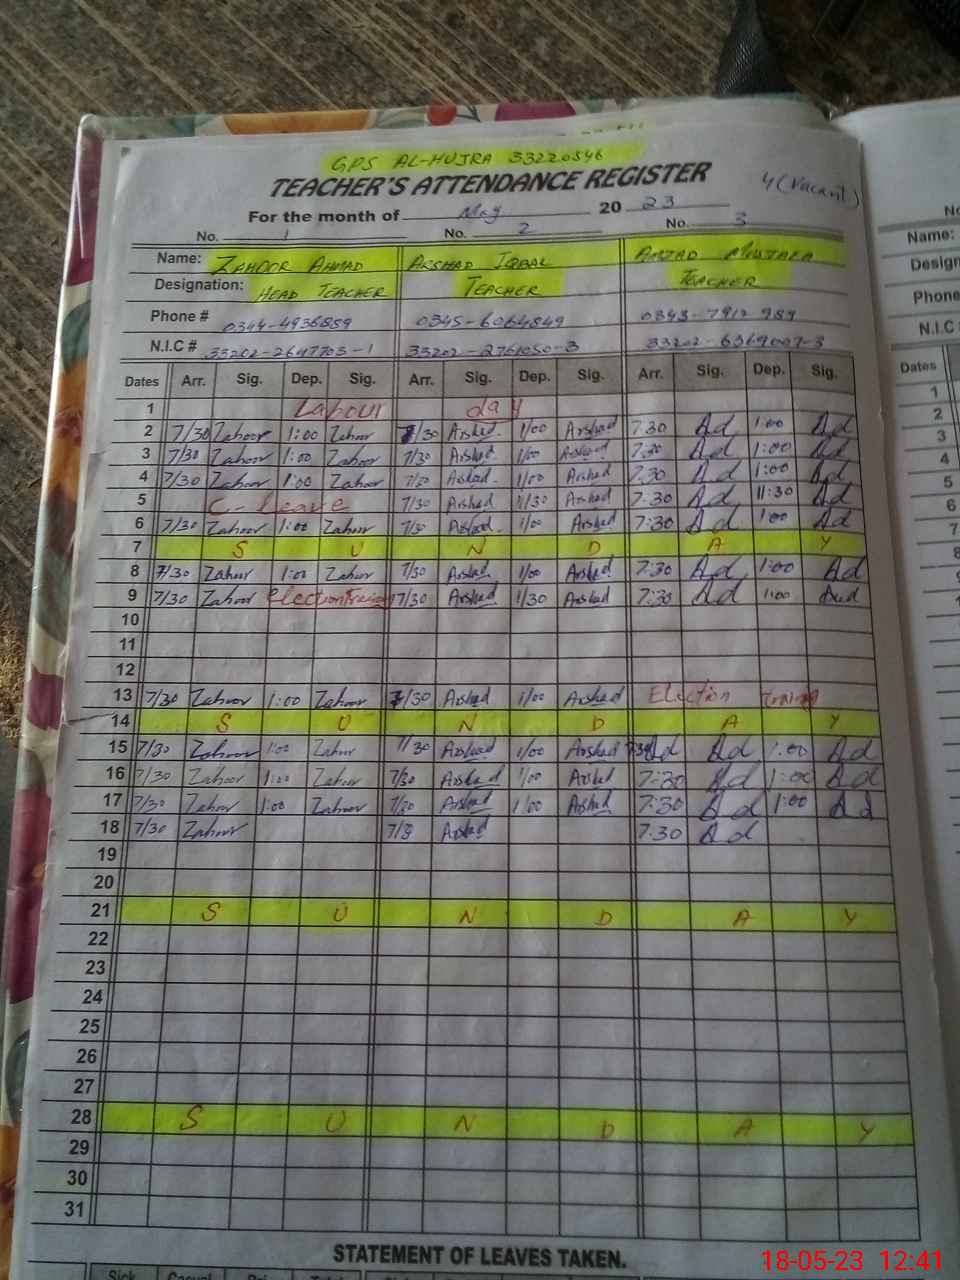 GPS AL-HUJRA 33220546
TEACHER'S ATTENDANCE REGISTER
4 (Vacant)
For the month of May 20 23
No. 1 No. 2 No. 3
Name: ZAHOOR AHMAD ARSHAD IQBAL AMJAD MUSTAFA
Designation: HEAD TEACHER TEACHER TEACHER
Phone # 0344-4936859 0345-6064849 0343-7912 989
N.I.C # 33202-2647703-1 33202-2761050-3 33202-6369007-3
Dates Arr. Sig. Dep. Sig. Arr. Sig. Dep. Sig. Arr. Sig. Dep. Sig.
1 Labour day
2 7/30 Zahoor 1:00 Zahoor 7/30 Arshad 1/00 Arshad 7:30 Ad 1:00 Ad
3 7/30 Zahoor 1:00 Zahoor 7/30 Arshad 1/00 Arshad 7:30 Ad 1:00 Ad
4 7/30 Zahoor 1:00 Zahoor 7/30 Arshad 1/00 Arshad 7:30 Ad 1:00 Ad
5 C-Leave 7/30 Arshad 11/30 Arshad 7:30 Ad 11:30 Ad
6 7/30 Zahoor 1:00 Zahoor 7/30 Arshad 1/00 Arshad 7:30 Ad 1:00 Ad
7 S U N D A Y
8 7/30 Zahoor 1:00 Zahoor 7/30 Arshad 1/00 Arshad 7:30 Ad 1:00 Ad
9 7/30 Zahoor Election Training 7/30 Arshad 1/30 Arshad 7:30 Ad 1:00 Ad
10
11
12
13 7/30 Zahoor 1:00 Zahoor 7/30 Arshad 1/00 Arshad Election Training
14 S U N D A Y
15 7/30 Zahoor 1:00 Zahoor 7/30 Arshad 1/00 Arshad 7:30 Ad Ad 1:00 Ad
16 7/30 Zahoor 1:00 Zahoor 7/30 Arshad 1/00 Arshad 7:30 Ad 1:00 Ad
17 7/30 Zahoor 1:00 Zahoor 7/30 Arshad 1/00 Arshad 7:30 Ad 1:00 Ad
18 7/30 Zahoor 7/30 Arshad 7:30 Ad
19
20
21 S U N D A Y
22
23
24
25
26
27
28 S U N D A Y
29
30
31
STATEMENT OF LEAVES TAKEN.
Sick Casual
No
Name:
Design
Phone
N.I.C #
Dates
1
2
3
4
5
6
7
8
9
18-05-23 12:41